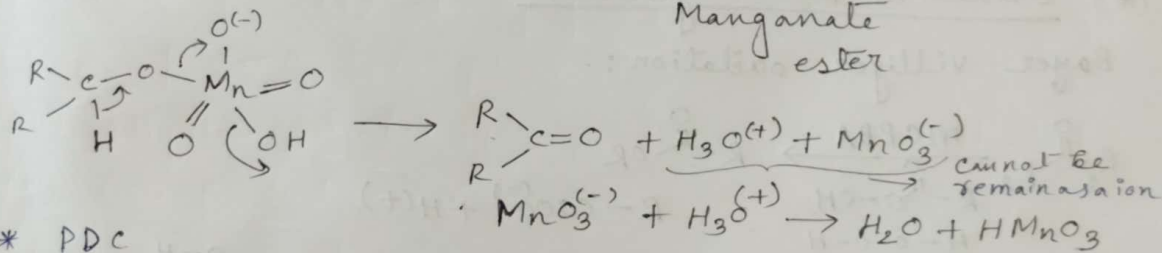 Manganate
ester
O(-)
R C - O - Mn = O
R H O OH
R
C=O + H3O(+) + MnO3(-)
R
cannot be
remain as a ion
MnO3(-) + H3O(+) → H2O + HMnO3
* PDC